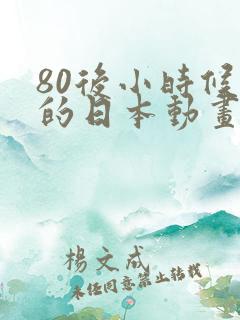 80後小時候
的日本動畫
楊文成
未經同意禁止轉載